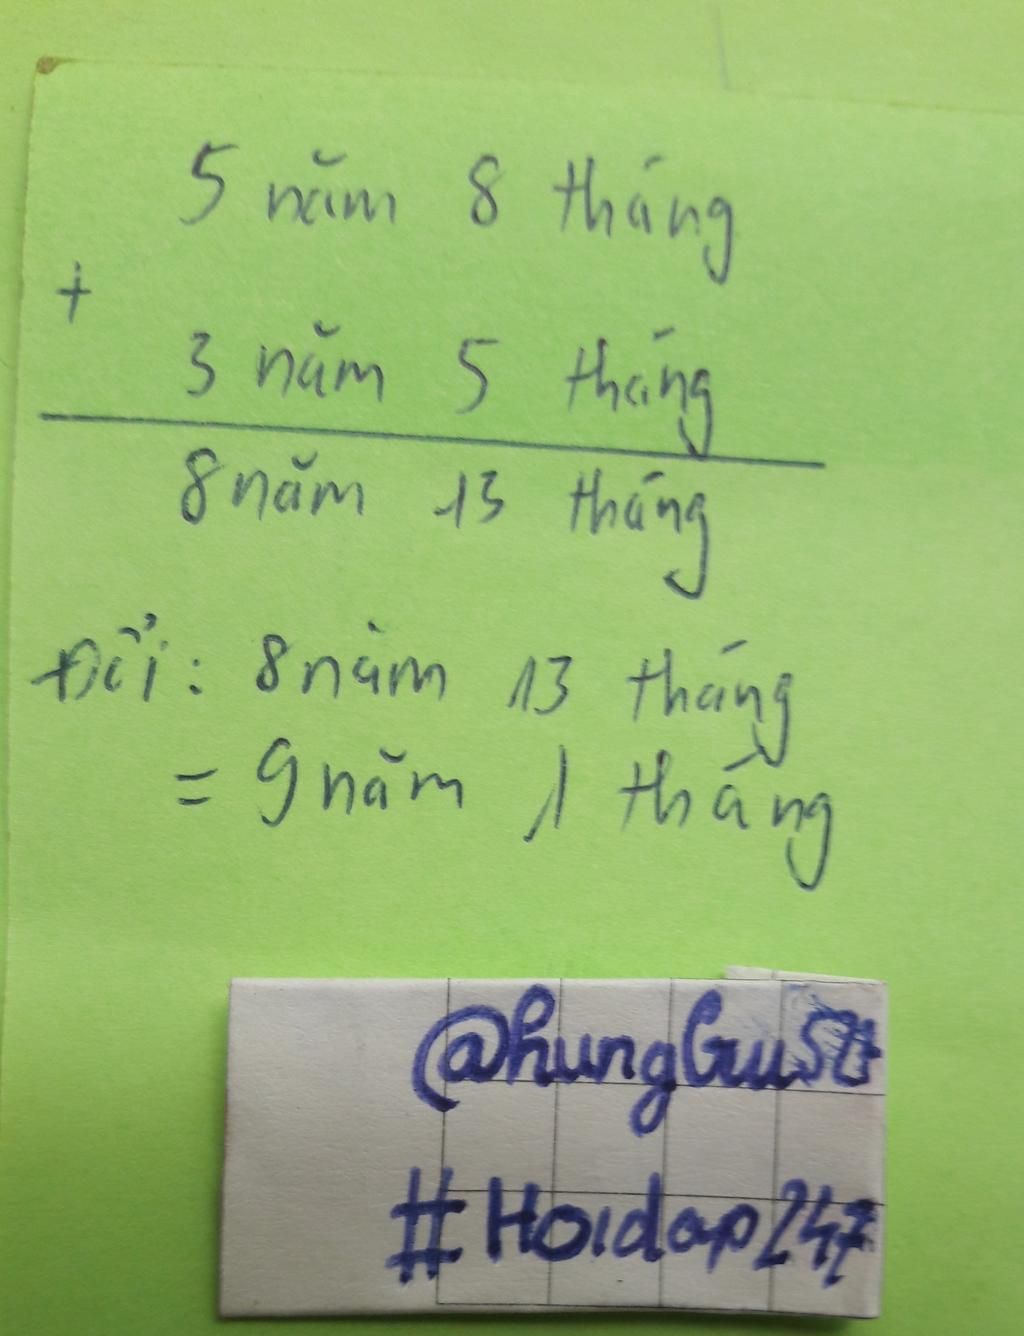 5 năm 8 tháng
+
3 năm 5 tháng
8 năm 13 tháng
Đổi: 8 năm 13 tháng
= 9 năm 1 tháng
#Hoidap247